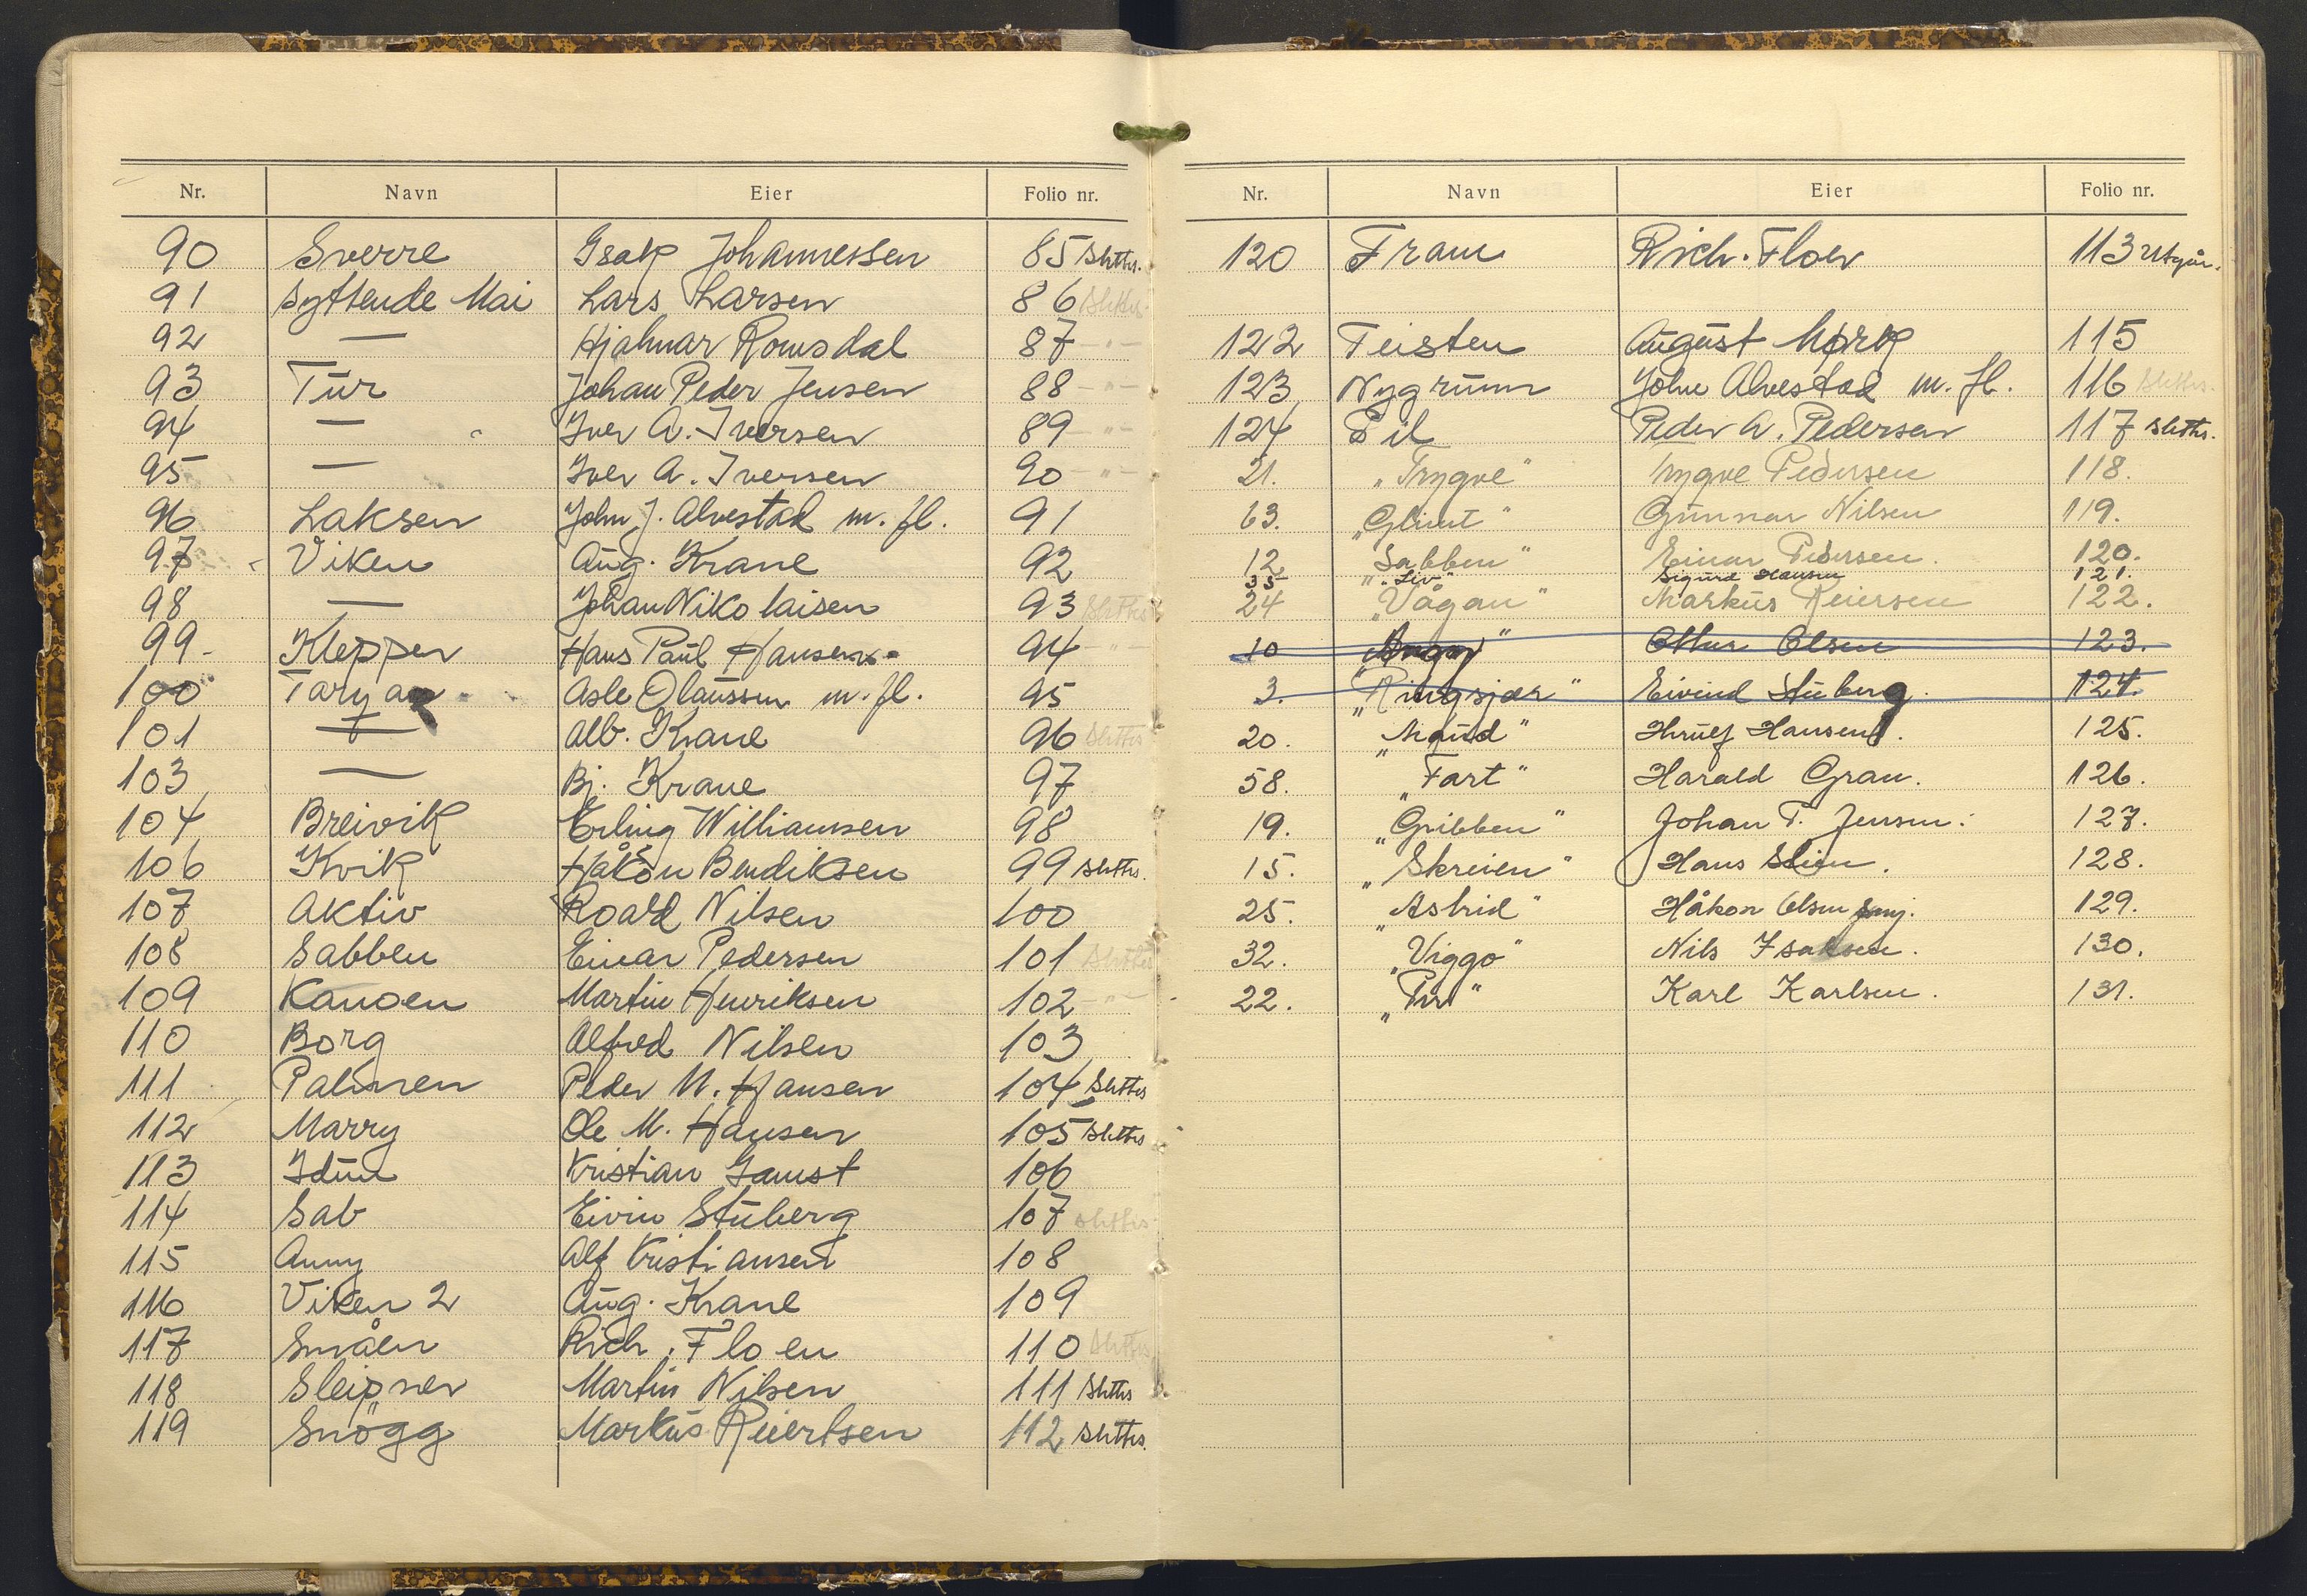 Nr. Navn Eier Folio nr.
90 Sverre Isak Johannessen 85 Slettes.
91 Syttende Mai Lars Larsen 86 Slettes.
92 — Hjalmar Romsdal 87 — " —
93 Tur Johan Peder Jensen 88 — " —
94 — Iver A. Iversen 89 — " —
95 — Iver A. Iversen 90 — " —
96 Laksen John J. Alvestad m. fl. 91
97 Viken Aug. Krane 92
98 — Johan Nikolaisen 93 Slettes
99 Klepper Hans Paul Hansen 94 — " —
100 Asle Olaussen m. fl. 95
101 — Alb. Krane 96 Slettes
103 — Bj. Krane 97
104 Breivik Erling Williamsen 98
106 Kvik Håkon Bendiksen 99 Slettes.
107 Aktiv Roald Nilsen 100
108 Sabben Einar Pedersen 101 Slettes
109 Kanoen Martin Henriksen 102 — " —
110 Borg Alfred Nilsen 103
111 Palmen Peder M. Hansen 104 Slettes
112 Marry Ole M. Hansen 105 Slettes
113 Idun Kristian Gamst 106
114 Sab Eivin Stuberg 107 Slettes
115 Anny Alf Kristiansen 108
116 Viken 2 Aug. Krane 109
117 Småen Rich. Floen 110 Slettes
118 Sleipner Martin Nilsen 111 Slettes
119 Snögg Markus Reiertsen 112 Slettes.
Nr. Navn Eier Folio nr.
120 Fram Rich. Floen 113 Utgår.
122 Teisten August Mørk 115
123 Nygrunn John Alvestad m. fl. 116 Slettes.
124 Pil Peder A. Pedersen 117 Slettes.
21. „Trygve" Trygve Pedersen 118.
63. „Glimt" Gunnar Nilsen 119.
12 „Sabben" Einar Pedersen. 120.
35 „Liv" Sigurd Hansen 121.
24 „Vågan" Markus Reiersen 122.
10 Olsen 123.
3. „Ringsjær" Eivind Stuberg. 124.
20. „Maud" Hansen. 125.
58. „Fart" Harald Grau. 126.
19. „Gribben" Johan P. Jensen. 127.
15. „Skreien" Hans Slim. 128.
25. „Astrid" Håkon Olsen 129.
32. „Viggo" Nils Isaksen. 130.
22. „Pir" Karl Karlsen. 131.